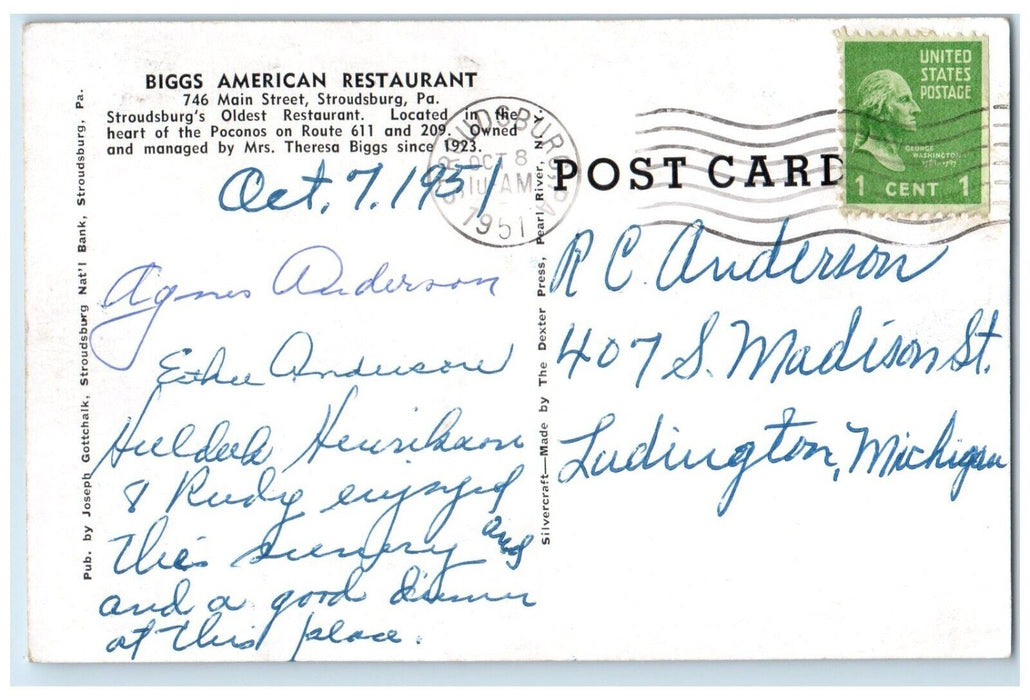 BIGGS AMERICAN RESTAURANT
746 Main Street, Stroudsburg, Pa.
Stroudsburg's Oldest Restaurant. Located in the
heart of the Poconos on Route 611 and 209. Owned
and managed by Mrs. Theresa Biggs since 1923.
Oct. 7. 1951
Agnes Anderson
Esther Anderson
Huldah Henrikson
& Rudy enjoyed
this scenery and
and a good dinner
at this place.
Pub. by Joseph Gottchalk, Stroudsburg Nat'l Bank, Stroudsburg, Pa.
Silvercraft—Made by The Dexter Press, Pearl River, N. Y.
STROUDSBURG PA
OCT 8
10 AM
1951
POST CARD
UNITED
STATES
POSTAGE
GEORGE
WASHINGTON
1789-1797
1 CENT 1
R C. Anderson
407 S. Madison St.
Ludington, Michigan